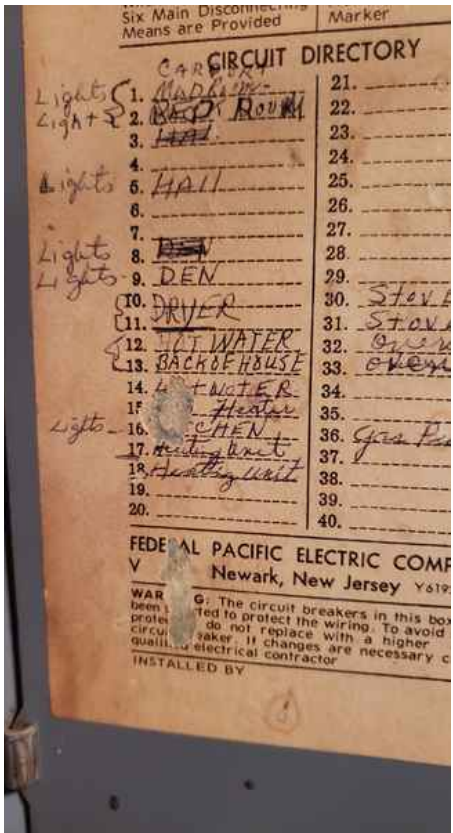 Six Main Disconnecting
Means are Provided
Marker
CIRCUIT DIRECTORY
CARPORT
Lights 1.
Lights 2. ROOM
3. HAll
4.
Lights 5. HAll
6.
7.
Lights 8. DEN
Lights 9. DEN
10. DRYER
11.
12. HOT WATER
13. BACK OF HOUSE
14. WATER
15 Heater
Lights - 16. CHEN
17. Heating Unit
18. Heating Unit
19.
20.
21.
22.
23.
24.
25.
26.
27.
28.
29.
30. Stove
31. Stove
32. Oven
33. oven
34.
35.
36. Gas
37.
38.
39.
40.
FEDERAL PACIFIC ELECTRIC COMP
V Newark, New Jersey Y619
WAR G: The circuit breakers in this box
been ted to protect the wiring. To avoid
prote do not replace with a higher
circui eaker. If changes are necessary c
quali electrical contractor
INSTALLED BY